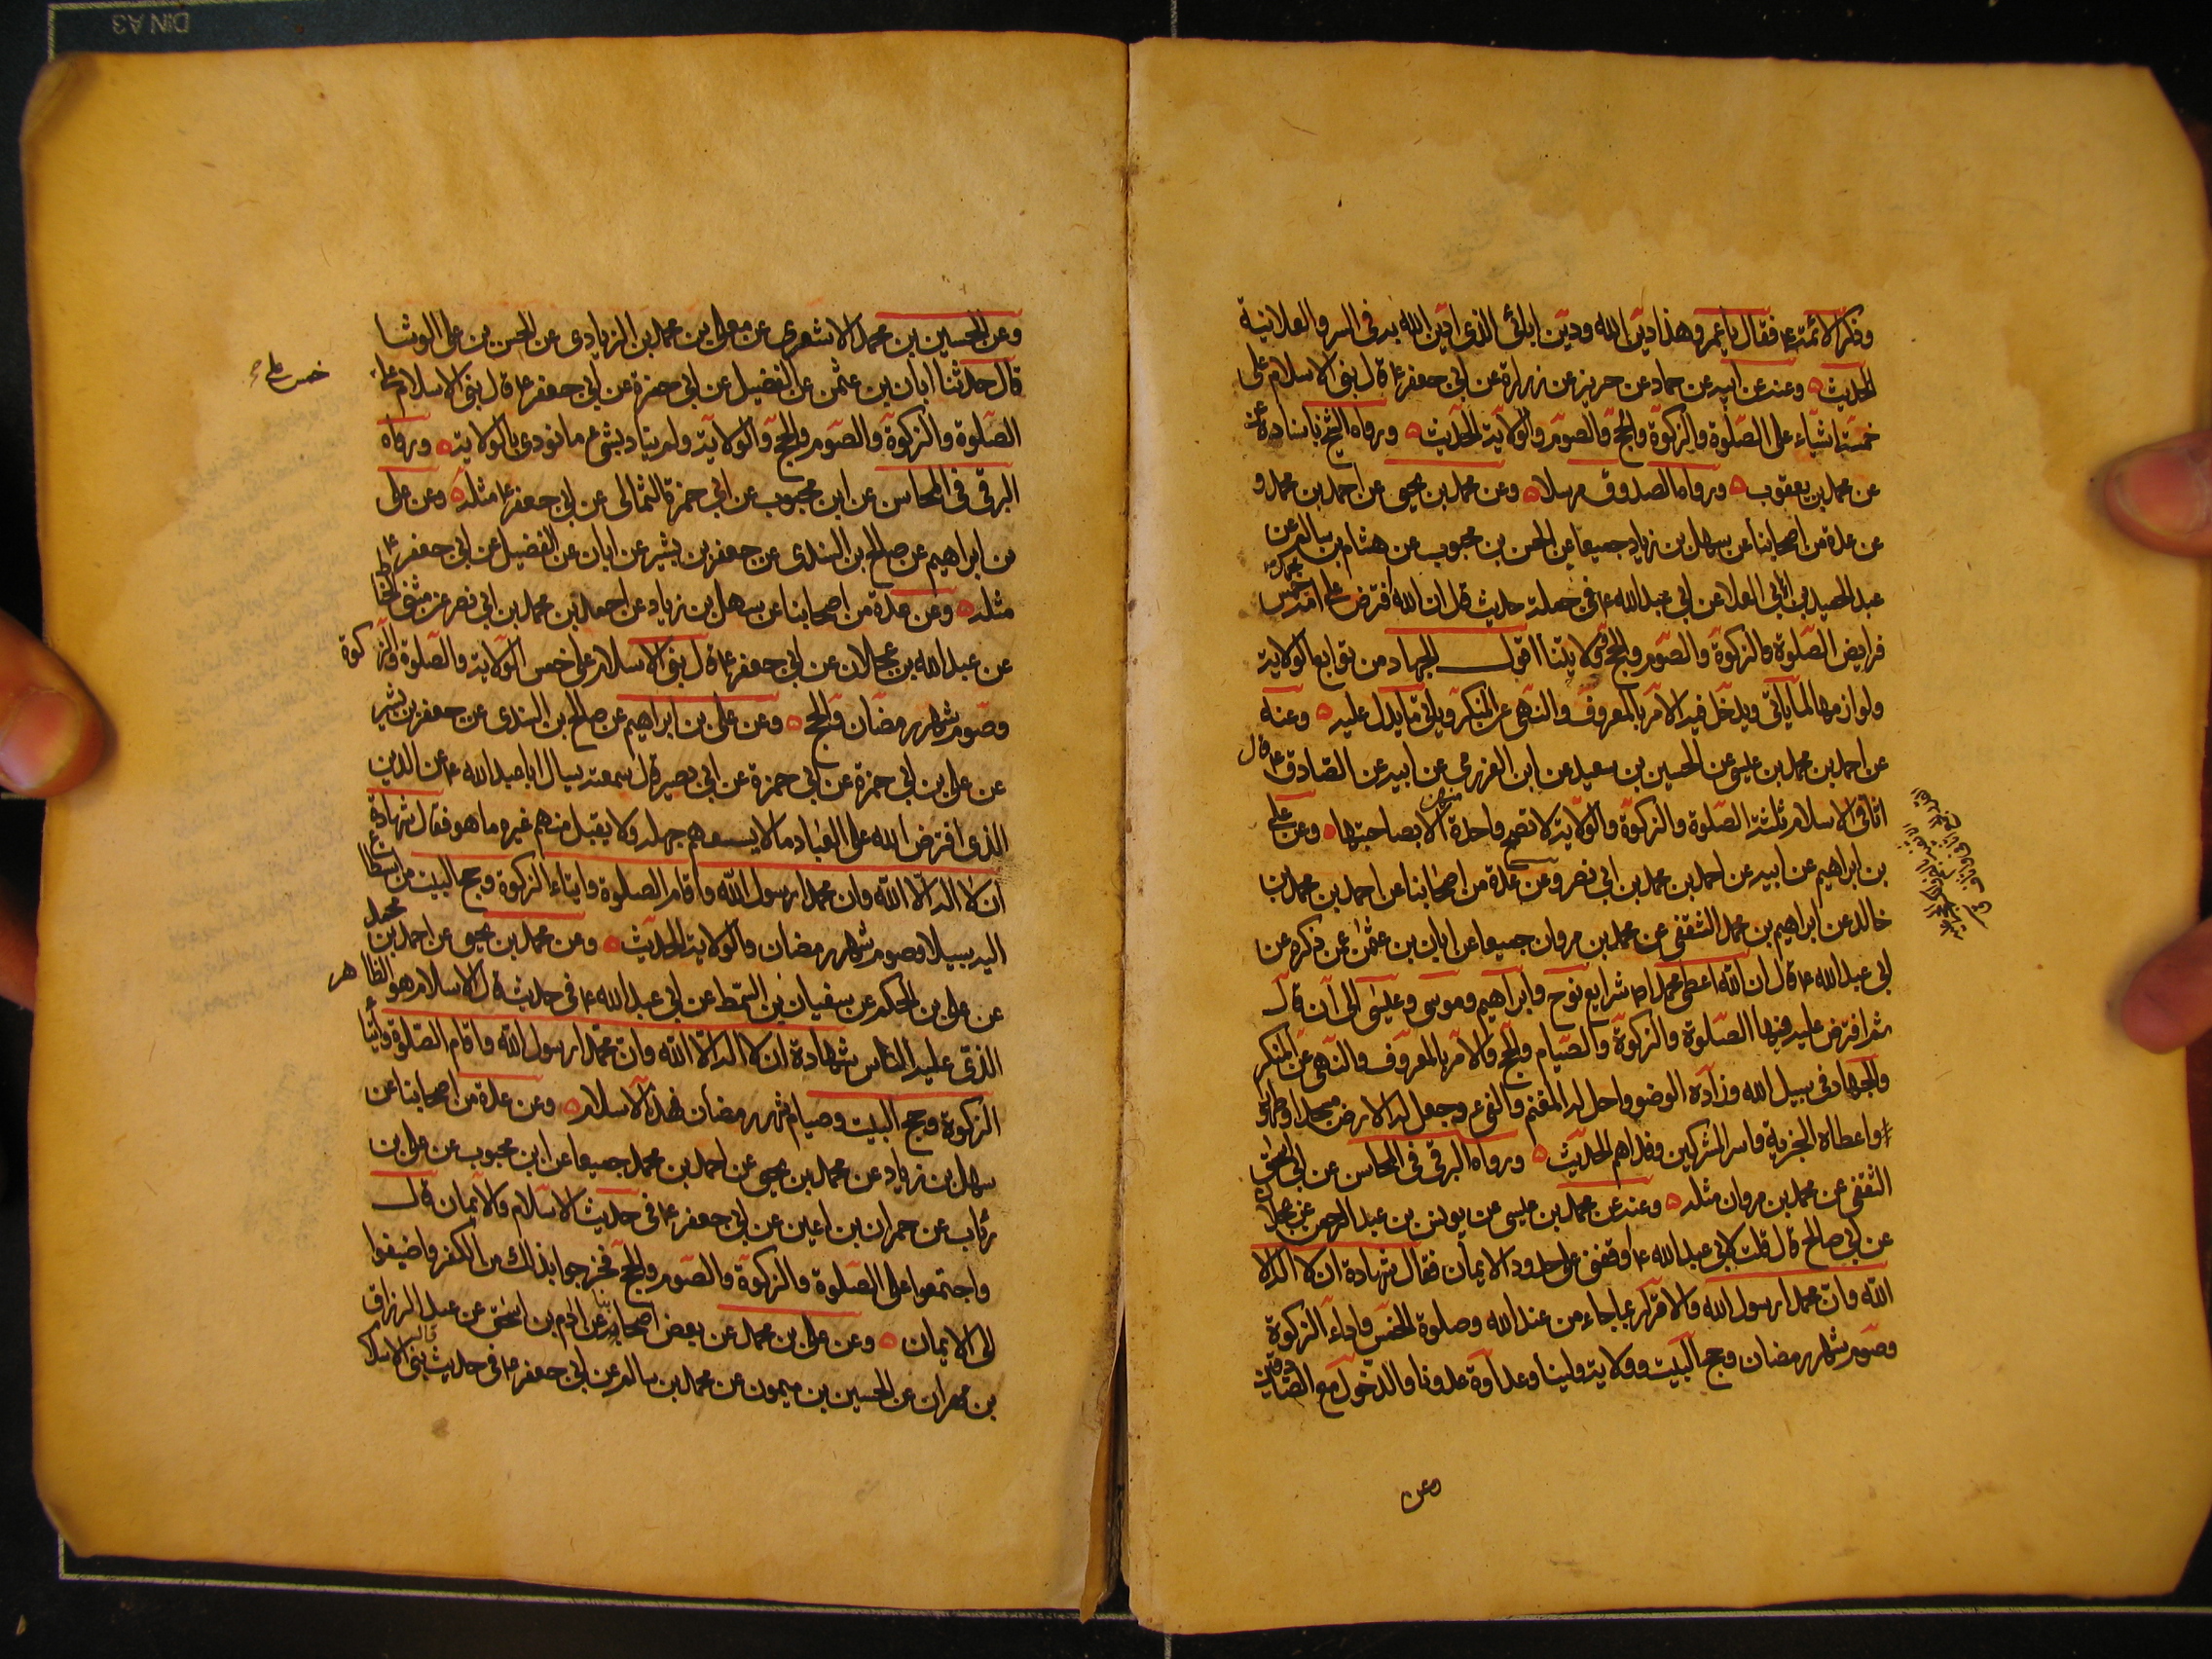 وذكر الائمة ع فقال يا عمرو هذا دين الله ودين ابائى الذى ادين الله به فى السر والعلانية
الحديث وعنه عن ابيه عن حماد عن حريز عن زرارة عن ابى جعفر ع قال بنى الاسلام على
خمسة اشياء على الصلوة والزكوة والحج والصوم والولاية الحديث ورواه الشيخ باسناده
عن محمد بن يعقوب ورواه الصدوق مرسلا وعن محمد بن يحيى عن احمد بن محمد و
عن عدة من اصحابنا عن سهل بن زياد جميعا عن الحسن بن محبوب عن هشام بن سالم عن
عبد الحميد بن ابى العلا عن ابى عبد الله ع فى جملة حديث قال ان الله افترض على امة محمد خمس
فرايض الصلوة والزكوة والصوم والحج وولايتنا اقول الجهاد من توابع الولاية
ولوازمها لما ياتى ويدخل فيه الامر بالمعروف والنهى عن المنكر وياتى ما يدل عليه وعنه
عن احمد بن محمد بن عيسى عن الحسين بن سعيد عن ابن العزرمى عن ابيه عن الصادق ع قال
اثافى الاسلام ثلثة الصلوة والزكوة والولاية لا تصح واحدة منهن الا بصاحبتها وعن على
بن ابراهيم عن ابيه عن احمد بن محمد بن ابى نصر وعن عدة من اصحابنا عن احمد بن محمد بن
خالد عن ابراهيم بن محمد الثقفى عن محمد بن مروان جميعا عن ابان بن عثمن عن ذكره عن
ابى عبد الله ع قال ان الله اعطى محمدا ص شرايع نوح وابراهيم وموسى وعيسى الى ان قال
ثم افترض عليه فيها الصلوة والزكوة والصيام والحج والامر بالمعروف والنهى عن المنكر
والجهاد فى سبيل الله وزاده الوضو واحل له المغنم والفىء وجعل له الارض مسجدا وطهورا
واعطاه الجزية واسر المشركين وفداهم الحديث ورواه البرقى فى المحاسن عن ابى اسحق
الثقفى عن محمد بن مروان مثله وعنه عن محمد بن عيسى عن يونس بن عبد الرحمن عن عجلان
عن ابى صالح قال قلت لابى عبد الله ع اوقفنى على حدود الايمان فقال شهادة ان لا اله الا
الله وان محمدا رسول الله والاقرار بما جاء من عند الله وصلوة الخمس واداء الزكوة
وصوم شهر رمضان وحج البيت وولاية ولينا وعداوة عدونا والدخول مع الصادقين
وعن
وعن الحسين بن محمد الاشعرى عن معلى بن محمد بن الزيادى عن الحسن بن على الوشا
قال حدثنا ابان بن عثمن عن الفضيل عن ابى حمزة عن ابى جعفر ع قال بنى الاسلام على
خمس على
الصلوة والزكوة والصوم والحج والولاية ولم يناد بشىء ما نودى بالولاية ورواه
البرقى فى المحاسن عن ابن محبوب عن ابى حمزة الثمالى عن ابى جعفر ع مثله وعن على
بن ابراهيم عن صالح بن السندى عن جعفر بن بشير عن ابان عن الفضيل عن ابى جعفر ع
مثله وعن عدة من اصحابنا عن سهل بن زياد عن احمد بن محمد بن ابى نصر عن مثنى الحناط
عن عبد الله بن عجلان عن ابى جعفر ع قال بنى الاسلام على خمس الولاية والصلوة والزكوة
وصوم شهر رمضان والحج وعن على بن ابراهيم عن صالح بن السندى عن جعفر بن بشير
عن على بن ابى حمزة عن ابى حمزة عن ابى بصير قال سمعته يسال ابا عبد الله ع عن الدين
الذى افترض الله على العباد ما لا يسعهم جهله ولا يقبل منهم غيره ما هو فقال شهادة
ان لا اله الا الله وان محمدا رسول الله واقام الصلوة وايتاء الزكوة وحج البيت من استطاع
اليه سبيلا وصوم شهر رمضان والولاية الحديث وعن محمد بن يحيى عن احمد بن محمد
عن على بن الحكم عن سفيان بن السمط عن ابى عبد الله ع فى حديث قال الاسلام هو الظاهر
الذى عليه الناس شهادة ان لا اله الا الله وان محمدا رسول الله واقام الصلوة وايتا
الزكوة وحج البيت وصيام شهر رمضان فهذا الاسلام وعن عدة من اصحابنا عن
سهل بن زياد عن محمد بن يحيى عن احمد بن محمد جميعا عن ابن محبوب عن على بن
رئاب عن حمران بن اعين عن ابى جعفر ع فى حديث الاسلام والايمان قال
واجتمعوا على الصلوة والزكوة والصوم والحج فخرجوا بذلك من الكفر واضيفوا
الى الايمان وعن على بن محمد عن بعض اصحابنا عن ادم بن اسحق عن عبد الرزاق
بن مهران عن الحسين بن ميمون عن محمد بن سالم عن ابى جعفر ع فى حديث قال بنى الاسلام